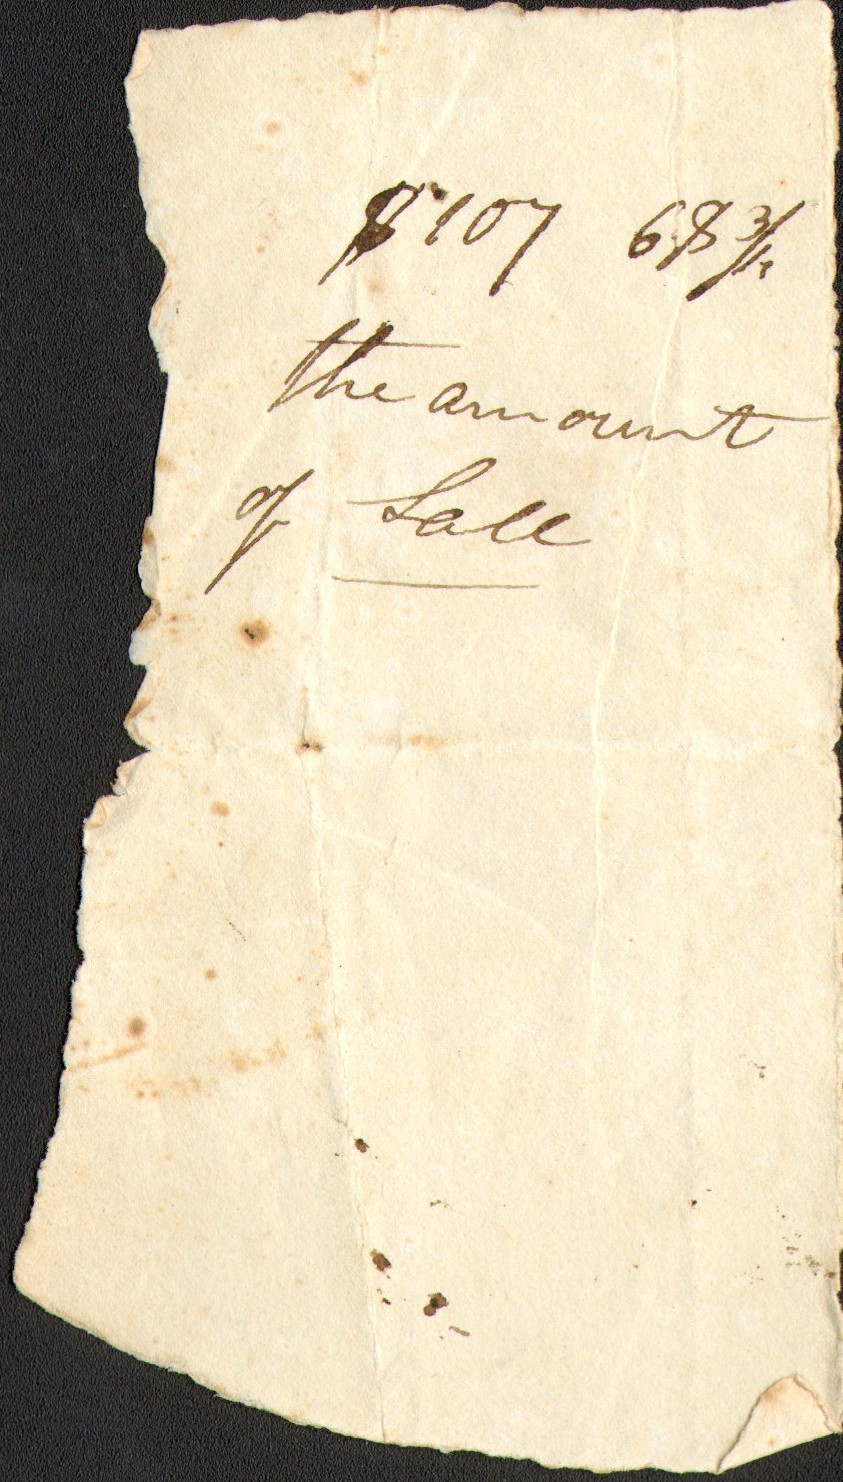 $107 68 3/4
the amount
of Sale